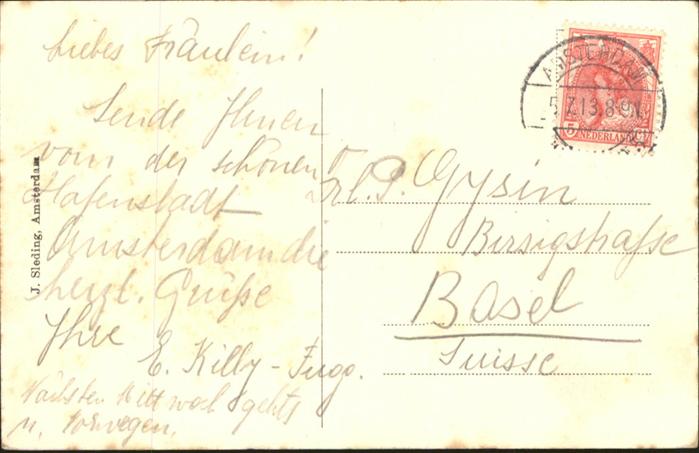 Liebes Fräulein!
Sende Ihnen
von der schönen
Hafenstadt
Amsterdam die
herzl. Grüße
Ihre
E. Killy-
Nächsten Mittwoch gehts
n. Norwegen.
J. Sleding, Amsterdam
AMSTERDAM
5.7.13.8-9N.
5
NEDERLAND
Frl. P. Gysin
Birsigstraße
Basel
Suisse